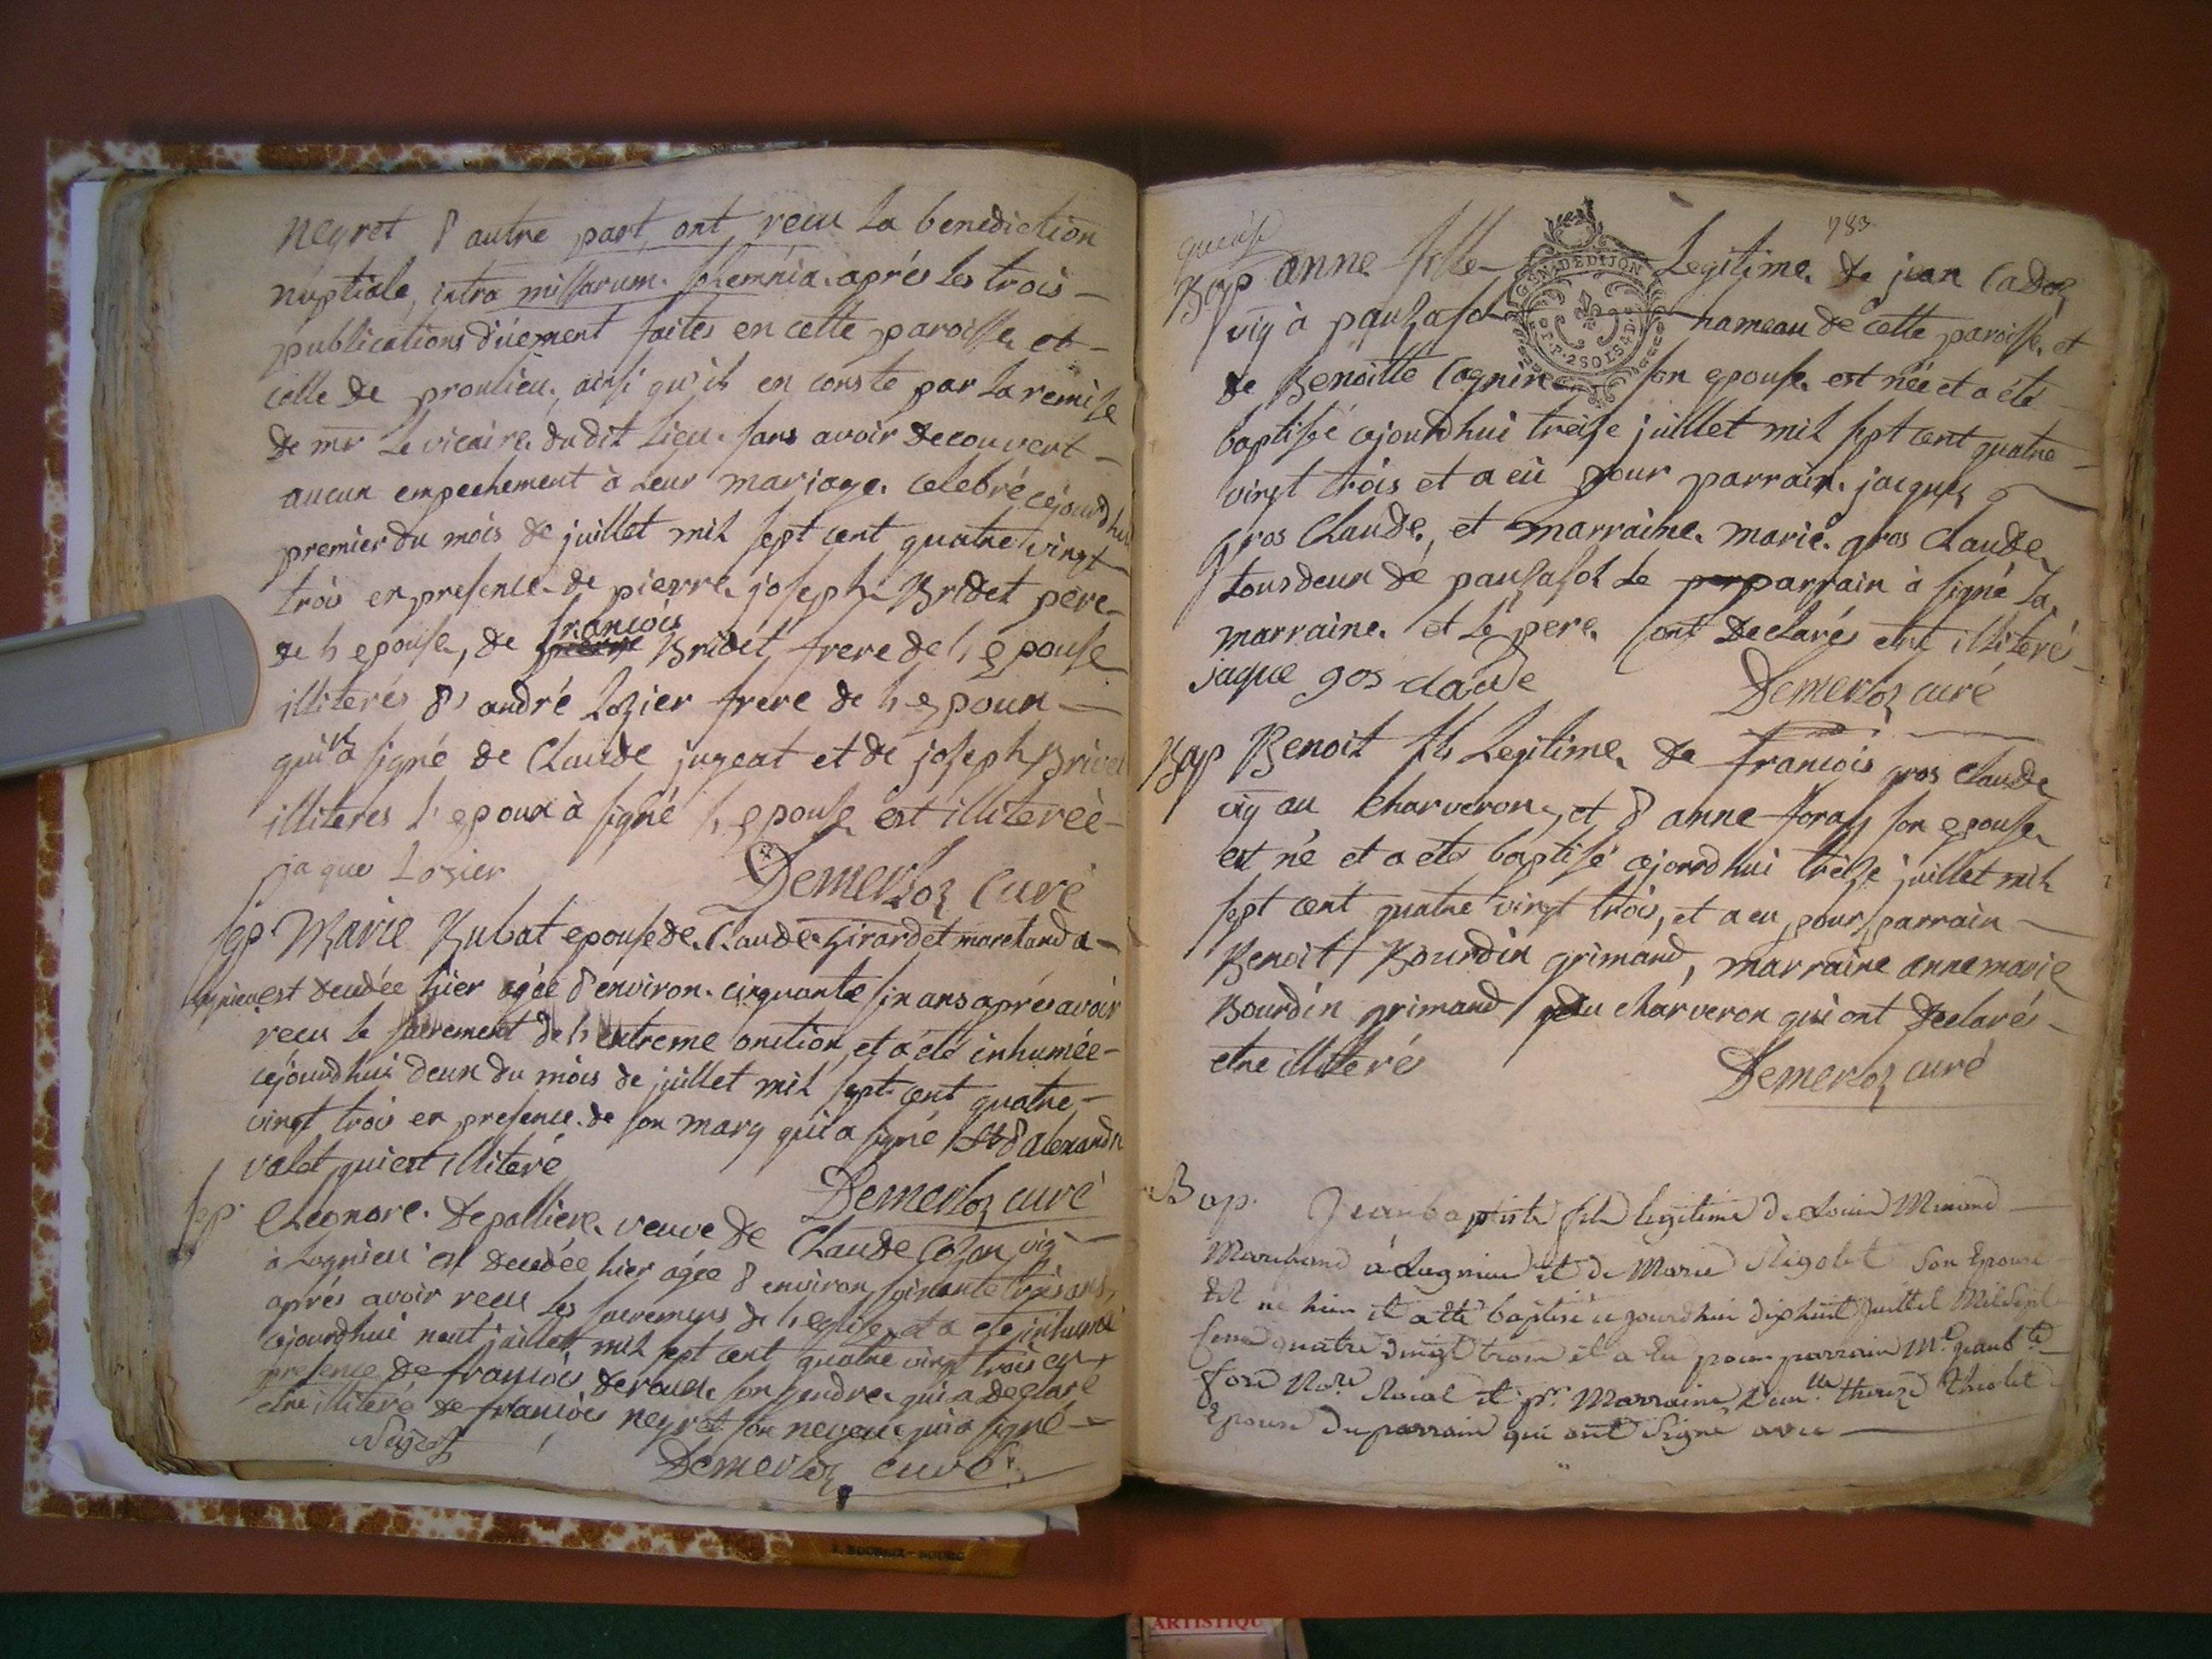 negret d autre part ont recu la benediction
nuptiale, intra missarum solemnia aprés les trois
publications düement faites en cette paroisse et
celle de proulieu, ainsi qu'il en conste par la remise
de mr le vicaire dudit lieu sans avoir decouvert
aucun empechement à leur mariage celebré cejourdhui
premier du mois de juillet mil sept cent quatre vingt
trois en presence de pierre joseph Bridet pere
de l epouse, de françois Bridet frere de l epouse
illiterés d' andré Lozier frere de l epoux
qui a signé de Claude jugeat et de joseph
illiteres l'epoux à signé l epouse est illiterée
jaque Lozier Demerloz curé
sep Marie Rubat epouse de Claude girardet marchand a
lagnieu est decedée hier agée d'environ cinquante six ans aprés avoir
recu le sacrement de l extreme onction et a été inhumée
cejourdhui deux du mois de juillet mil sept cent quatre
vingt trois en presence de son mary qui a signé et d alexandre
valet qui est illiteré Demerloz curé
sep Eleonore Depalliere veuve de Claude Cozon vig
à Lagnieu est decedée hier agée d environ soixante trois ans
aprés avoir recu les sacremens de l eglise et a eté inhumé
cejourdhui neuf juillet mil sept cent quatre vingt trois en
presence de françois derouse son gendre qui a declaré
etre illiteré de françois neyret son neveu qui a signé
Demerloz curé
783
Bap anne fille Legitime de jean Cadoz
GEN. DE DIJON
P.P. 2 SOLS 4 D.
vig à pauzafol hameau de cette paroisse, et
de Benoitte Cognin son epouse est née et a été
baptisée cejourdhui treise juillet mil sept cent quatre
vingt trois et a eü pour parrain jacques
gros Claude, et marraine marie gros Claude
tous deux de pauzafol le parrain à signé la
marraine et le pere sont declarés etre illiterés
jaque gos claude Demerloz curé
Bap Benoit fils Legitime de françois gros Claude
vig au charveron, et d anne foray son epouse
est né et a eté baptisé cejourdhui treize juillet mil
sept cent quatre vingt trois, et a eu pour parrain
Benoit Bourdin grimaud, marraine anne marie
Bourdin grimaud du charveron qui ont declarés
etre illiterés Demerloz curé
Bap. Jean baptiste fils legitime de Louis Minand
Marchand à Lagnieu et de Marie Rigolet son Epouse
Est né hier et a été baptisé cejourdhui dixhuit juillet Mil Sept
Cent quatre vingt trois et a Eu pour parrain
Roial et pr. Marraine Thereze
Epouse du parrain qui ont Signé avec